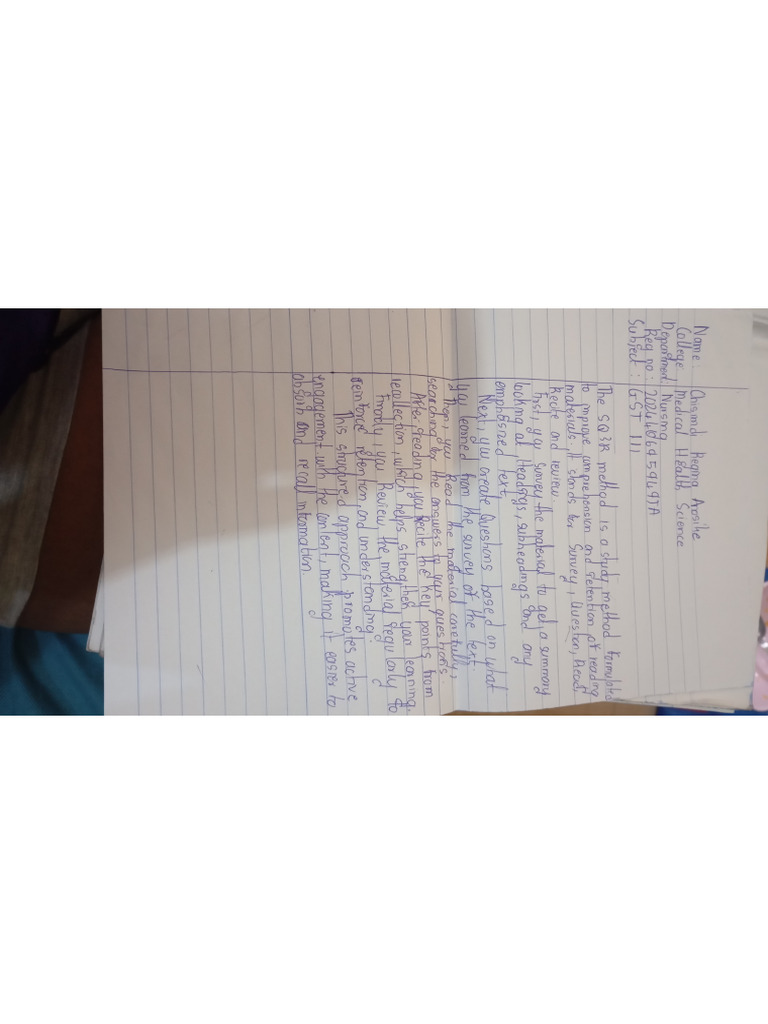 Name: Chisimdi Regina Arosihe
College: Medical Health Science
Department: Nursing
Reg no:
Subject: GST 111
The SQ3R method is a study method formulated
to improve comprehension and retention of reading
materials. It stands for Survey, Question, Read
Recite and review.
First, you survey the material to get a summary
looking at headings, subheadings and any
emphasized text.
Next, you create Questions based on what
you learned from the survey of the text.
Then, you Read the material carefully,
searching for the answers to your questions.
After reading, you recite the key points from
recollection, which helps strengthen your learning.
Finally, you Review the material regularly to
reinforce retention, and understanding.
This structured approach promotes active
engagement with the content, making it easier to
absorb and recall information.